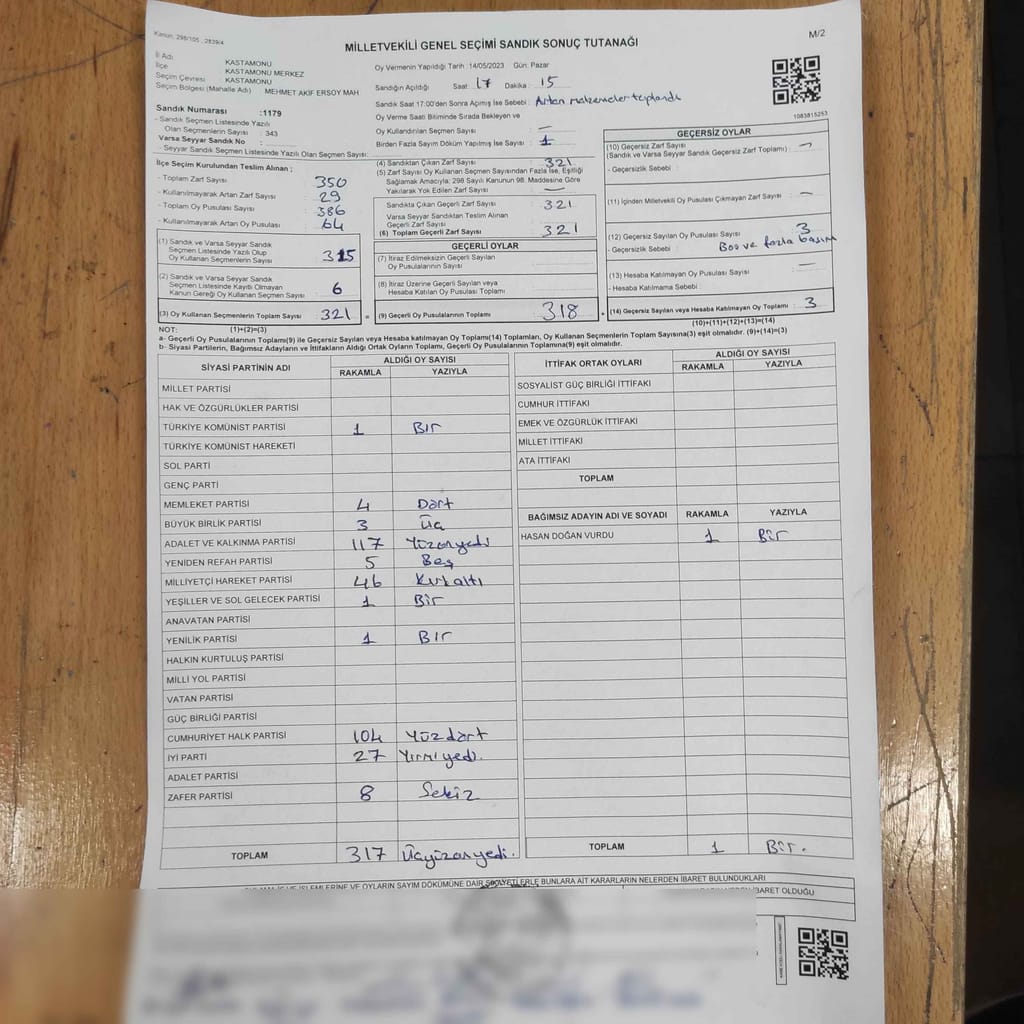 Kanun, 298/105 , 2839/4
MİLLETVEKİLİ GENEL SEÇİMİ SANDIK SONUÇ TUTANAĞI
M/2
İl Adı KASTAMONU
İlçe KASTAMONU MERKEZ
Seçim Çevresi KASTAMONU
Seçim Bölgesi (Mahalle Adı) MEHMET AKİF ERSOY MAH
Oy Vermenin Yapıldığı Tarih :14/05/2023 Gün: Pazar
Sandığın Açıldığı Saat : 17 Dakika : 15
Sandık Saat 17:00'den Sonra Açımış İse Sebebi : Artan malzemeler toplandı
Oy Verme Saati Bitiminde Sırada Bekleyen ve
Oy Kullandırılan Seçmen Sayısı : —
Birden Fazla Sayım Döküm Yapılmış İse Sayısı : 1
1083815253
Sandık Numarası :1179
- Sandık Seçmen Listesinde Yazılı
Olan Seçmenlerin Sayısı : 343
Varsa Seyyar Sandık No :
- Seyyar Sandık Seçmen Listesinde Yazılı Olan Seçmen Sayısı:
İlçe Seçim Kurulundan Teslim Alınan ;
- Toplam Zarf Sayısı 350
- Kullanılmayarak Artan Zarf Sayısı 29
- Toplam Oy Pusulası Sayısı 386
- Kullanılmayarak Artan Oy Pusulası 64
(1) Sandık ve Varsa Seyyar Sandık
Seçmen Listesinde Yazılı Olup
Oy Kullanan Seçmenlerin Sayısı 315
(2) Sandık ve Varsa Seyyar Sandık
Seçmen Listesinde Kayıtlı Olmayan
Kanun Gereği Oy Kullanan Seçmen Sayısı 6
(3) Oy Kullanan Seçmenlerin Toplam Sayısı 321 =
(4) Sandıktan Çıkan Zarf Sayısı 321
(5) Zarf Sayısı Oy Kullanan Seçmen Sayısından Fazla İse, Eşitliği
Sağlamak Amacıyla; 298 Sayılı Kanunun 98. Maddesine Göre
Yakılarak Yok Edilen Zarf Sayısı —
Sandıkta Çıkan Geçerli Zarf Sayısı 321
Varsa Seyyar Sandıktan Teslim Alınan
Geçerli Zarf Sayısı
(6) Toplam Geçerli Zarf Sayısı 321
GEÇERLİ OYLAR
(7) İtiraz Edilmeksizin Geçerli Sayılan
Oy Pusulalarının Sayısı
(8) İtiraz Üzerine Geçerli Sayılan veya
Hesaba Katılan Oy Pusulası Toplamı
(9) Geçerli Oy Pusulalarının Toplamı 318 +
GEÇERSİZ OYLAR
(10) Geçersiz Zarf Sayısı
(Sandık ve Varsa Seyyar Sandık Geçersiz Zarf Toplamı) : —
- Geçersizlik Sebebi :
(11) İçinden Milletvekili Oy Pusulası Çıkmayan Zarf Sayısı —
(12) Geçersiz Sayılan Oy Pusulası Sayısı 3
- Geçersizlik Sebebi : Boş ve fazla basım
(13) Hesaba Katılmayan Oy Pusulası Sayısı —
- Hesaba Katılmama Sebebi :
(14) Geçersiz Sayılan veya Hesaba Katılmayan Oy Toplamı : 3
NOT: (1)+(2)=(3) (10)+(11)+(12)+(13)=(14)
a- Geçerli Oy Pusulalarının Toplamı(9) ile Geçersiz Sayılan veya Hesaba katılmayan Oy Toplamı(14) Toplamları, Oy Kullanan Seçmenlerin Toplam Sayısına(3) eşit olmalıdır. (9)+(14)=(3)
b- Siyasi Partilerin, Bağımsız Adayların ve İttifakların Aldığı Ortak Oyların Toplamı, Geçerli Oy Pusulalarının Toplamına(9) eşit olmalıdır.
SİYASİ PARTİNİN ADI ALDIĞI OY SAYISI
RAKAMLA YAZIYLA
MİLLET PARTİSİ
HAK VE ÖZGÜRLÜKLER PARTİSİ
TÜRKİYE KOMÜNİST PARTİSİ 1 Bir
TÜRKİYE KOMÜNİST HAREKETİ
SOL PARTİ
GENÇ PARTİ
MEMLEKET PARTİSİ 4 Dört
BÜYÜK BİRLİK PARTİSİ 3 Üç
ADALET VE KALKINMA PARTİSİ 117 Yüzonyedi
YENİDEN REFAH PARTİSİ 5 Beş
MİLLİYETÇİ HAREKET PARTİSİ 46 Kırkaltı
YEŞİLLER VE SOL GELECEK PARTİSİ 1 Bir
ANAVATAN PARTİSİ
YENİLİK PARTİSİ 1 Bir
HALKIN KURTULUŞ PARTİSİ
MİLLİ YOL PARTİSİ
VATAN PARTİSİ
GÜÇ BİRLİĞİ PARTİSİ
CUMHURİYET HALK PARTİSİ 104 Yüzdört
İYİ PARTİ 27 Yirmiyedi.
ADALET PARTİSİ
ZAFER PARTİSİ 8 Sekiz
TOPLAM 317 Üçyüzonyedi.
İTTİFAK ORTAK OYLARI ALDIĞI OY SAYISI
RAKAMLA YAZIYLA
SOSYALİST GÜÇ BİRLİĞİ İTTİFAKI
CUMHUR İTTİFAKI
EMEK VE ÖZGÜRLÜK İTTİFAKI
MİLLET İTTİFAKI
ATA İTTİFAKI
TOPLAM
BAĞIMSIZ ADAYIN ADI VE SOYADI RAKAMLA YAZIYLA
HASAN DOĞAN VURDU 1 Bir
TOPLAM 1 Bir.
İŞLEMLERİNE VE OYLARIN SAYIM DÖKÜMÜNE DAİR ŞİKAYETLERLE BUNLARA AİT KARARLARIN NELERDEN İBARET BULUNDUKLARI
İBARET OLDUĞU